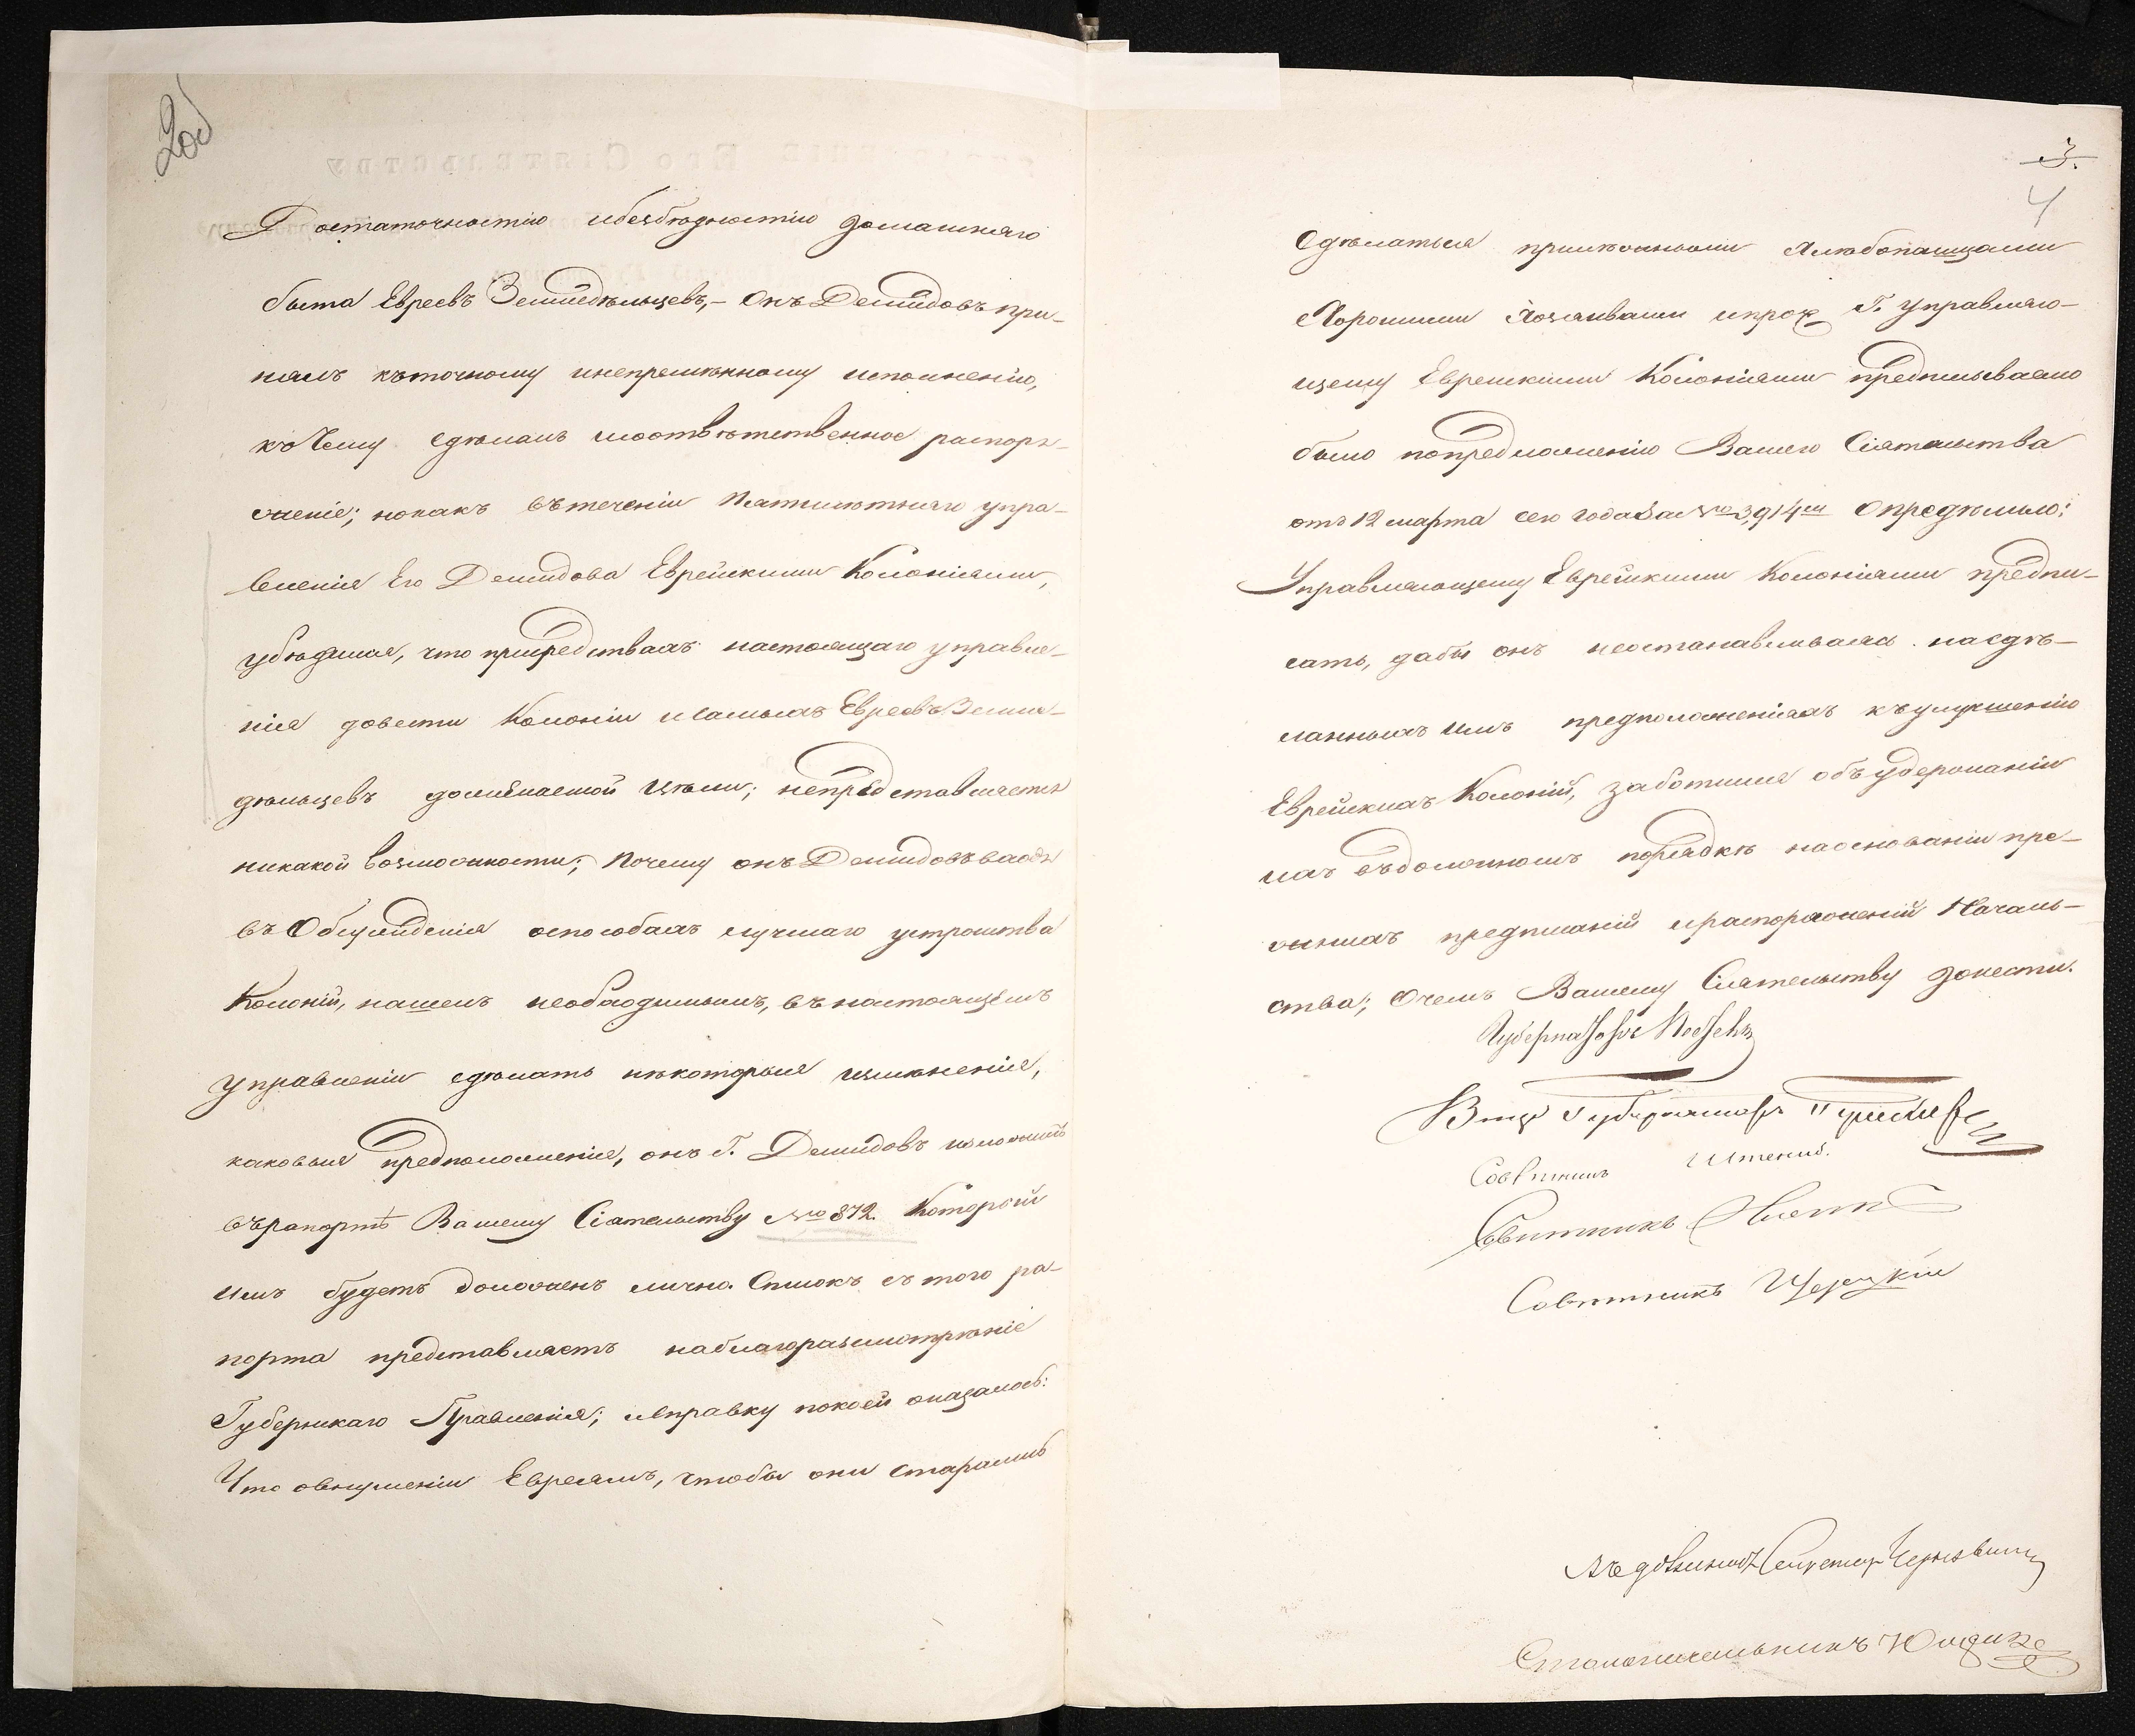 2об
Достаточностію и безбѣдностію домашняго
быта Евреевъ Земледѣльцевъ,- Онъ Демидовъ при-
нялъ къ точному и непремѣнному исполненію,
къ чему сдѣлалъ и соотвѣтственное распоря-
женіе; но какъ въ теченіи пятилѣтняго упра-
вленія Его Демидова Еврейскими Колоніями,
убѣдился, что при средствахъ настоящаго управле-
нія довести Колоніи и самыхъ Евреевъ Земле-
дѣльцевъ до желаемой цѣли; непредставляется
никакой возможности; почему онъ Демидовъ входя
въ Обсужденія о способахъ лучшаго устройства
Колоній, нашелъ необходимымъ, въ настоящемъ
управленіи сдѣлать нѣкоторыя измѣненія,
каковыя предположенія, онъ Г. Демидовъ изложилъ
въ рапортѣ Вашему Сіятельству № 872. который
имъ будетъ доложенъ лично. Списокъ съ того ра-
порта представляетъ на благоразсмотрѣніе
Губернскаго Правленія; и справку по коей оказалось:
Что о внушеніи Евреямъ, чтобы они старались
3.
4
Сдѣлаться прилѣжными Хлѣбопашцами
Хорошими Хозяевами и проч. Г. Управляю-
щему Еврейскими Колоніями предписываемо
было по предложенію Вашего Сіятельства
отъ 12 марта сего года за № 3,914м Опредѣлило:
Управляющему Еврейскими Колоніями предпи-
сать, дабы онъ не останавливаясь на сдѣ-
ланныхъ имъ предположеніяхъ къ улучшенію
Еврейскихъ Колоній, заботился объ удержаніи
ихъ въ должномъ порядкѣ на основаніи пре-
жнихъ предписаній и распоряженій Началь-
ства; О чемъ Вашему Сіятельству донести.
Губернаторъ
Вице Губернаторъ
Совѣтникъ
Совѣтникъ
Совѣтникъ
Секретарь
Столоначальникъ